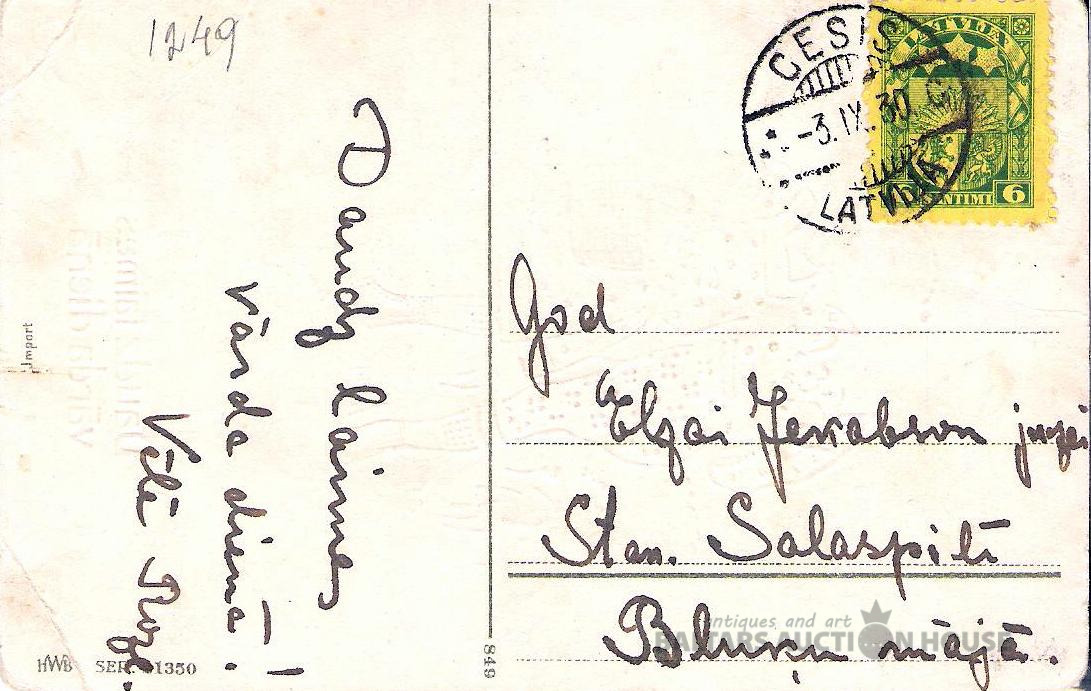 1249
Daudz laimes
vārda dienā!
Vēlē
Import
HWB SER. 1350
849
CESIS
-3.IX.30
C
LATVIJA
LATVIJA
6
SANTIMI 6
God
Elzai Jekabson
Stan. Salaspilī
māja.
Antiques and art
BALTARS AUCTION HOUSE